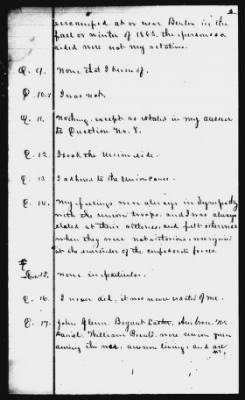 encamped at or near Berlin in the
fall or winter of 1863, the persons so
aided were not my relatives.
Q. 9. None that I know of.
Q. 10. I was not.
Q. 11. Nothing except as stated in my answer
to Question No. 8.
Q. 12. I took the Union side.
Q. 13. I adhered to the Union cause.
Q. 14. My feelings were always in sympathy
with the Union troops, and I was always
elated at their victories, and felt otherwise
when they were not victorious, rejoiced
at the surrender of the confederate forces.
15. None in particular.
Q. 16. I never did, it was never wanted of me.
Q. 17. John Glenn, Bryant
Daniel, William were union men
during the war, are now living, and are